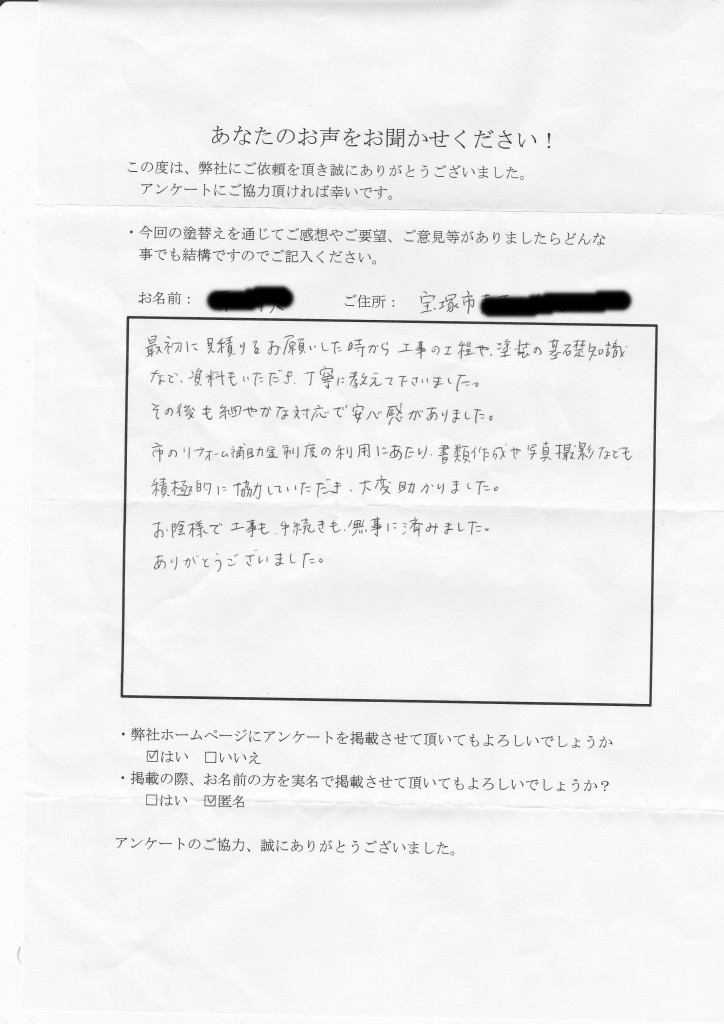 あなたのお声をお聞かせください！
この度は、弊社にご依頼を頂き誠にありがとうございました。
アンケートにご協力頂ければ幸いです。
・今回の塗替えを通じてご感想やご要望、ご意見等がありましたらどんな
事でも結構ですのでご記入ください。
お名前： ご住所： 宝塚市
最初に見積りをお願いした時から工事の工程や、塗装の基礎知識
など、資料もいただき、丁寧に教えて下さいました。
その後も細やかな対応で安心感がありました。
市のリフォーム補助金制度の利用にあたり、書類作成や写真撮影なども
積極的に協力していただき、大変助かりました。
お陰様で工事も、手続きも、無事に済みました。
ありがとうございました。
・弊社ホームページにアンケートを掲載させて頂いてもよろしいでしょうか
☑はい □いいえ
・掲載の際、お名前の方を実名で掲載させて頂いてもよろしいでしょうか？
□はい ☑匿名
アンケートのご協力、誠にありがとうございました。